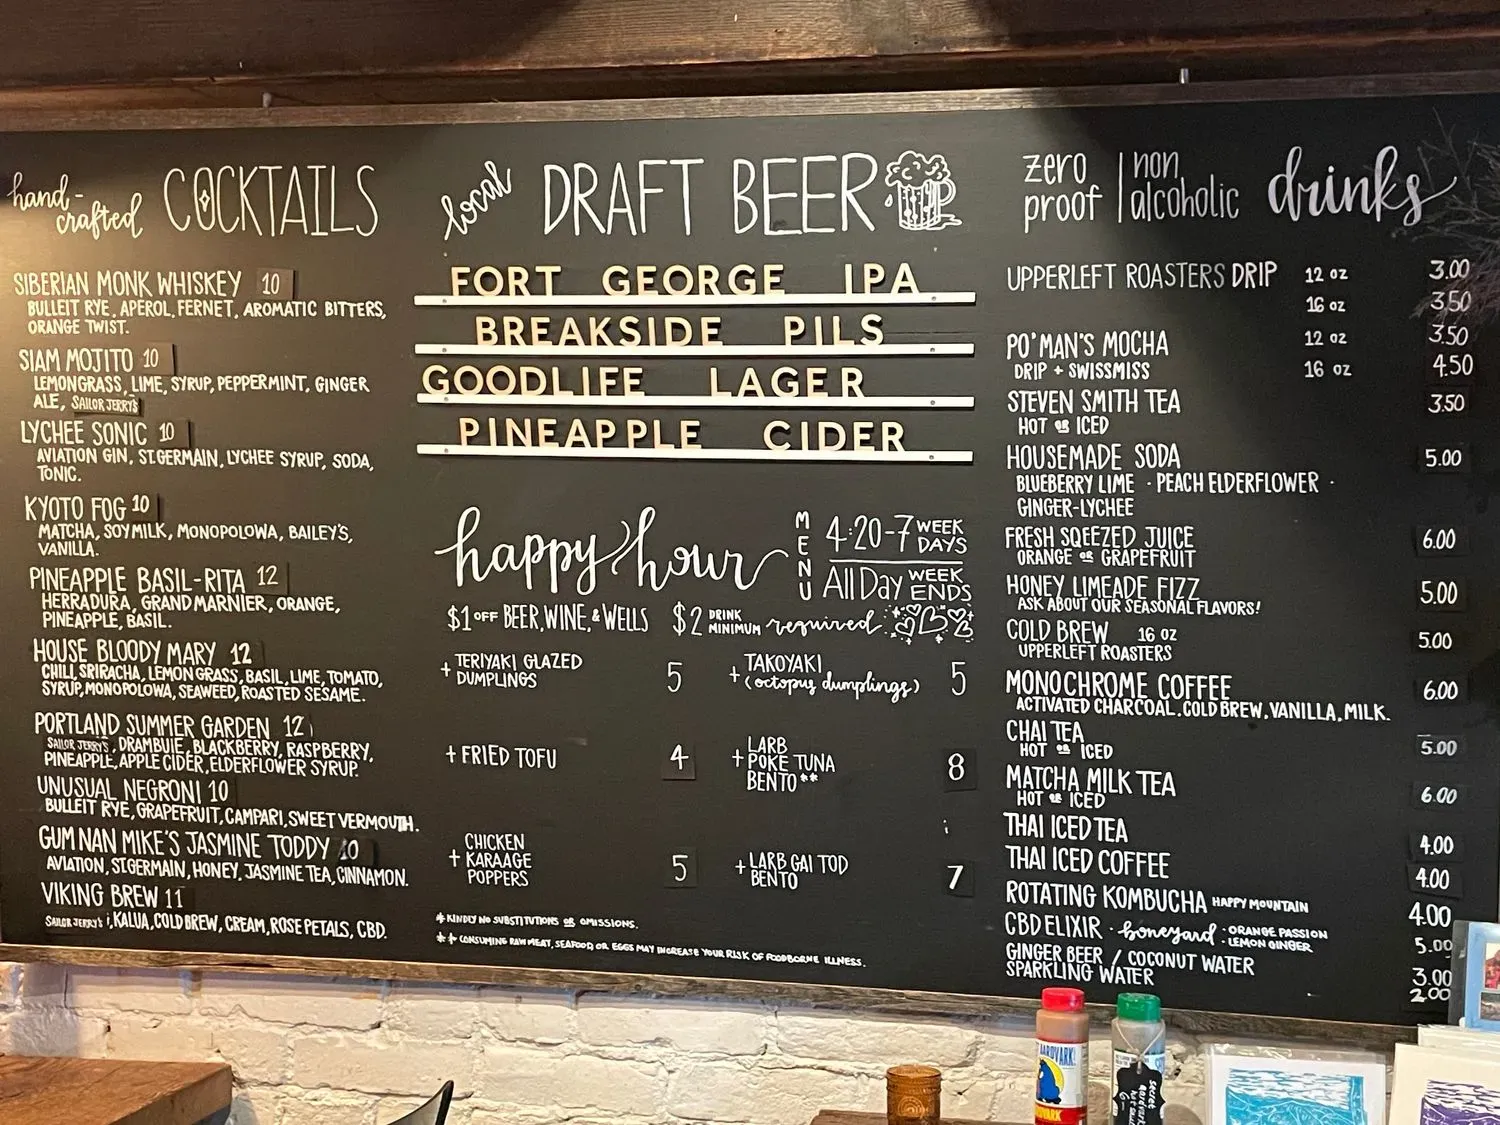 hand-crafted COCKTAILS
SIBERIAN MONK WHISKEY 10
BULLEIT RYE, APEROL, FERNET, AROMATIC BITTERS,
ORANGE TWIST.
SIAM MOJITO 10
LEMONGRASS, LIME, SYRUP, PEPPERMINT, GINGER
ALE, SAILOR JERRY'S
LYCHEE SONIC 10
AVIATION GIN, ST.GERMAIN, LYCHEE SYRUP, SODA,
TONIC.
KYOTO FOG 10
MATCHA, SOYMILK, MONOPOLOWA, BAILEY'S,
VANILLA.
PINEAPPLE BASIL-RITA 12
HERRADURA, GRAND MARNIER, ORANGE,
PINEAPPLE, BASIL.
HOUSE BLOODY MARY 12
CHILI, SRIRACHA, LEMONGRASS, BASIL, LIME, TOMATO,
SYRUP, MONOPOLOWA, SEAWEED, ROASTED SESAME.
PORTLAND SUMMER GARDEN 12
SAILOR JERRY'S, DRAMBUIE, BLACKBERRY, RASPBERRY,
PINEAPPLE, APPLE CIDER, ELDERFLOWER SYRUP.
UNUSUAL NEGRONI 10
BULLEIT RYE, GRAPEFRUIT, CAMPARI, SWEET VERMOUTH.
GUM NAN MIKE'S JASMINE TODDY 10
AVIATION, ST.GERMAIN, HONEY, JASMINE TEA, CINNAMON.
VIKING BREW 11
SAILOR JERRY'S, KALUA, COLD BREW, CREAM, ROSE PETALS, CBD.
local DRAFT BEER
FORT GEORGE IPA
BREAKSIDE PILS
GOODLIFE LAGER
PINEAPPLE CIDER
happy hour MENU
4:20-7 WEEK DAYS
All Day WEEK ENDS
$1 OFF BEER, WINE, & WELLS $2 DRINK MINIMUM required
+ TERIYAKI GLAZED DUMPLINGS 5
+ TAKOYAKI (octopus dumplings) 5
+ FRIED TOFU 4
+ LARB POKE TUNA BENTO** 8
+ CHICKEN KARAAGE POPPERS 5
+ LARB GAI TOD BENTO 7
* KINDLY NO SUBSTITUTIONS OR OMISSIONS.
** CONSUMING RAW MEAT, SEAFOOD, OR EGGS MAY INCREASE YOUR RISK OF FOODBORNE ILLNESS.
zero proof | non alcoholic drinks
UPPERLEFT ROASTERS DRIP 12 oz 3.00
16 oz 3.50
PO'MAN'S MOCHA 12 oz 3.50
DRIP + SWISSMISS 16 oz 4.50
STEVEN SMITH TEA 3.50
HOT OR ICED
HOUSEMADE SODA 5.00
BLUEBERRY LIME · PEACH ELDERFLOWER ·
GINGER-LYCHEE
FRESH SQEEZED JUICE 6.00
ORANGE OR GRAPEFRUIT
HONEY LIMEADE FIZZ 5.00
ASK ABOUT OUR SEASONAL FLAVORS!
COLD BREW 16 OZ 5.00
UPPERLEFT ROASTERS
MONOCHROME COFFEE 6.00
ACTIVATED CHARCOAL, COLD BREW, VANILLA, MILK.
CHAI TEA 5.00
HOT OR ICED
MATCHA MILK TEA 6.00
HOT OR ICED
THAI ICED TEA 4.00
THAI ICED COFFEE 4.00
ROTATING KOMBUCHA HAPPY MOUNTAIN 4.00
CBD ELIXIR · boneyard · ORANGE PASSION · LEMON GINGER 5.00
GINGER BEER / COCONUT WATER 3.00
SPARKLING WATER 2.00
AARDVARK!
AARDVARK
Secret Aardvark